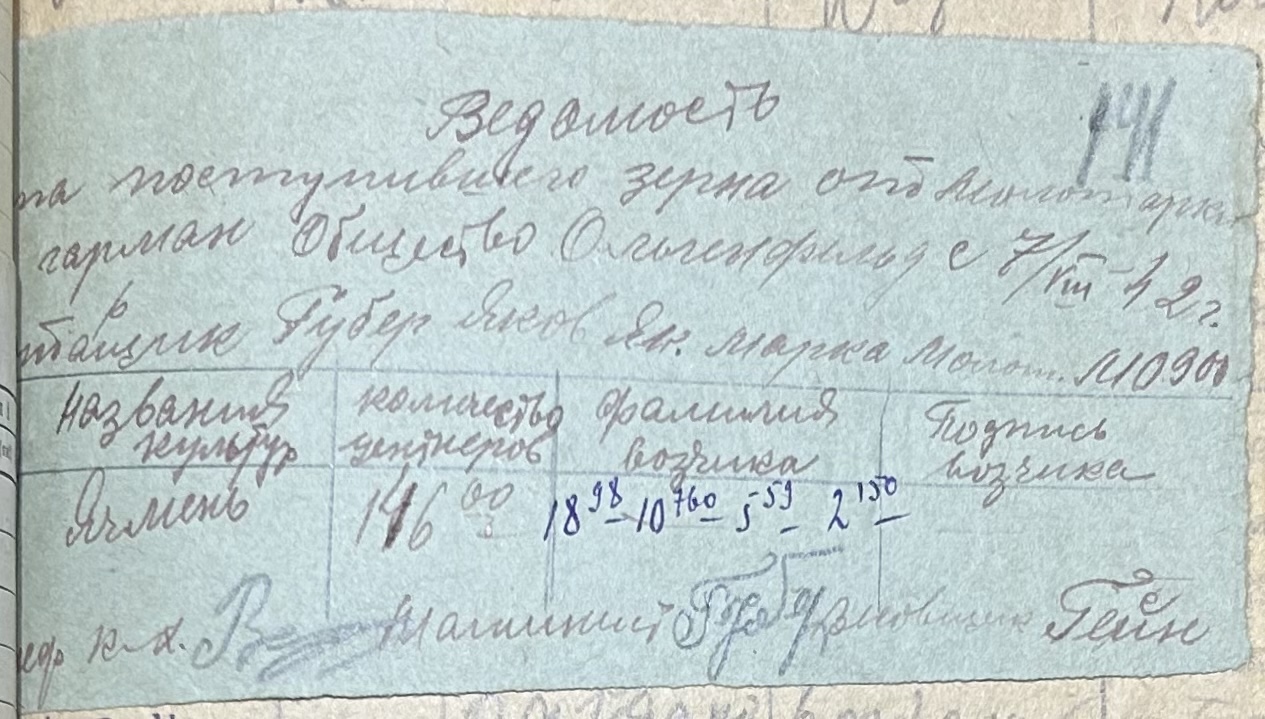 Ведомость
141
на поступившего зерна от Молотарки
гарман Общество Ольгенфельд с 7/VIII-42 г.
Губер Яков Як. марка Молот. М0900
Названия культур
количество центнеров
фамилия возчика
Подпись возчика
Ячмень 146 00 18 98 - 10 760 - 5 59 - 2 150 -
к-х. Машинист Губ Весовщик Гейн